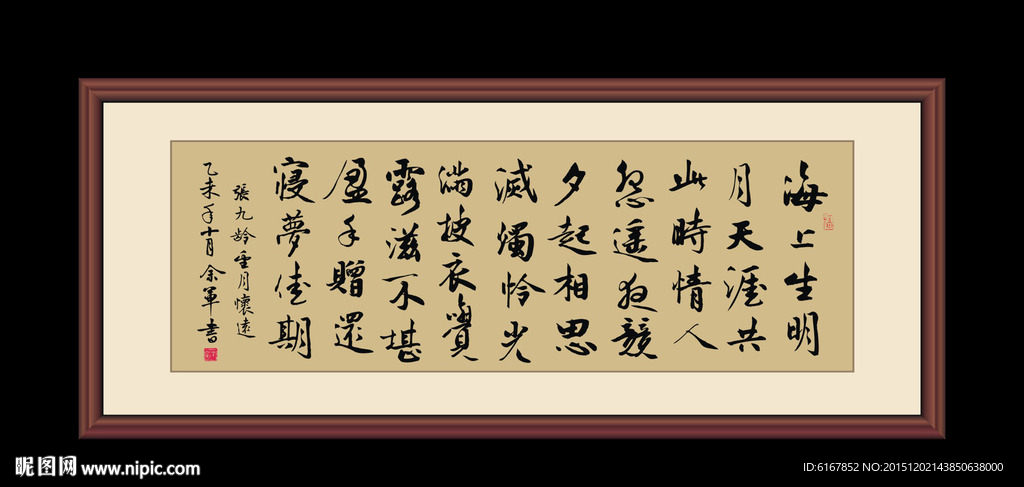 海上生明
月天涯共
此時情人
怨遥夜競
夕起相思
滅燭怜光
滿披衣覺
露滋不堪
盈手贈還
寝夢佳期
張九龄望月懷遠
乙未年十月余軍書
昵图网 www.nipic.com
ID:6167852 NO:20151202143850638000